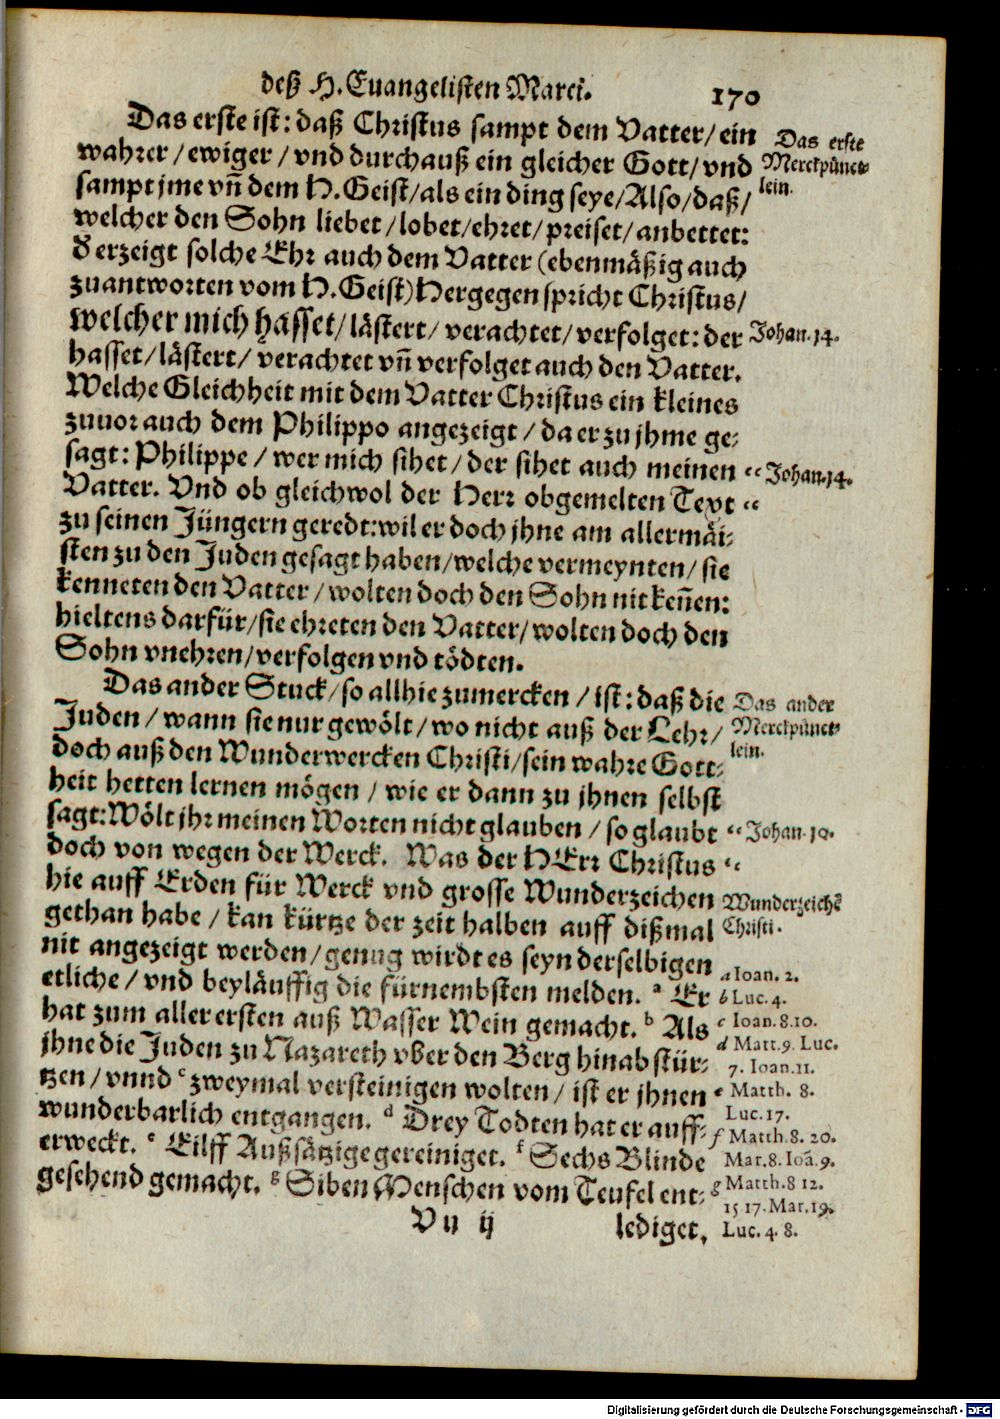 deß H. Euangelisten Marci. 170
Das erste ist: daß Christus sampt dem Vatter/ ein
wahrer/ ewiger/ vnd durchauß ein gleicher Gott/ vnd
sampt jme vñ dem H. Geist/ als ein ding seye/ Also/ daß/
welcher den Sohn liebet/ lobet/ ehret/ preiset/ anbettet:
d erzeigt solche Ehr auch dem Vatter (ebenmäßig auch
zuantworten vom H. Geist) Hergegen spricht Christus/
welcher mich hasset/ lästert/ verachtet/ verfolget: der
hasset/ lästert/ verachtet vñ verfolget auch den Vatter.
Welche Gleichheit mit dem Vatter Christus ein kleines
zuuor auch dem Philippo angezeigt/ da er zu jhme ge-
sagt: Philippe/ wer mich sihet/ der sihet auch meinen
Vatter. Vnd ob gleichwol der Herr obgemelten Text
zu seinen Jüngern geredt: wil er doch jhne am allermäi-
sten zu den Juden gesagt haben/ welche vermeynten/ sie
kenneten den Vatter/ wolten doch den Sohn nit keñen:
hieltens darfür/ sie ehreten den Vatter/ wolten doch den
Sohn vnehren/ verfolgen vnd tödten.
Das ander Stuck/ so allhie zumercken/ ist: daß die
Juden/ wann sie nur gewölt/ wo nicht auß der Lehr/
doch auß den Wunderwercken Christi/ sein wahre Gott-
heit hetten lernen mögen/ wie er dann zu jhnen selbst
sagt: Wölt jhr meinen Worten nicht glauben/ so glaubt
doch von wegen der Werck. Was der HErr Christus
hie auff Erden für Werck vnd grosse Wunderzeichen
gethan habe/ kan kürtze der zeit halben auff dißmal
nit angezeigt werden/ genug wirdt es seyn derselbigen
etliche/ vnd beyläuffig die fürnembsten melden. a Er
hat zum aller ersten auß Wasser Wein gemacht. b Als
jhne die Juden zu Nazareth vber den Berg hinab stür-
tzen/ vnnd c zweymal versteinigen wolten/ ist er jhnen
wunderbarlich entgangen. d Drey Todten hat er auff-
erweckt. e Eilff Außsätzige gereiniget. f Sechs Blinde
gesehend gemacht. g Siben Menschen vom Teufel ent-
Vu ij lediget,
Das erste
Merckpünct-
lein.
Johan. 14.
“ Johan. 14.
“
Das ander
Merckpünct-
lein.
“ Johan. 10.
“
Wunderzeichẽ
Christi.
a Ioan. 2.
b Luc. 4.
c Ioan. 8. 10.
d Matt. 9. Luc.
7. Ioan. 11.
e Matth. 8.
Luc. 17.
f Matth. 8. 20.
Mar. 8. Ioã. 9.
g Matth. 8 12.
15 17. Mar. 19.
Luc. 4. 8.
Digitalisierung gefördert durch die Deutsche Forschungsgemeinschaft - DFG